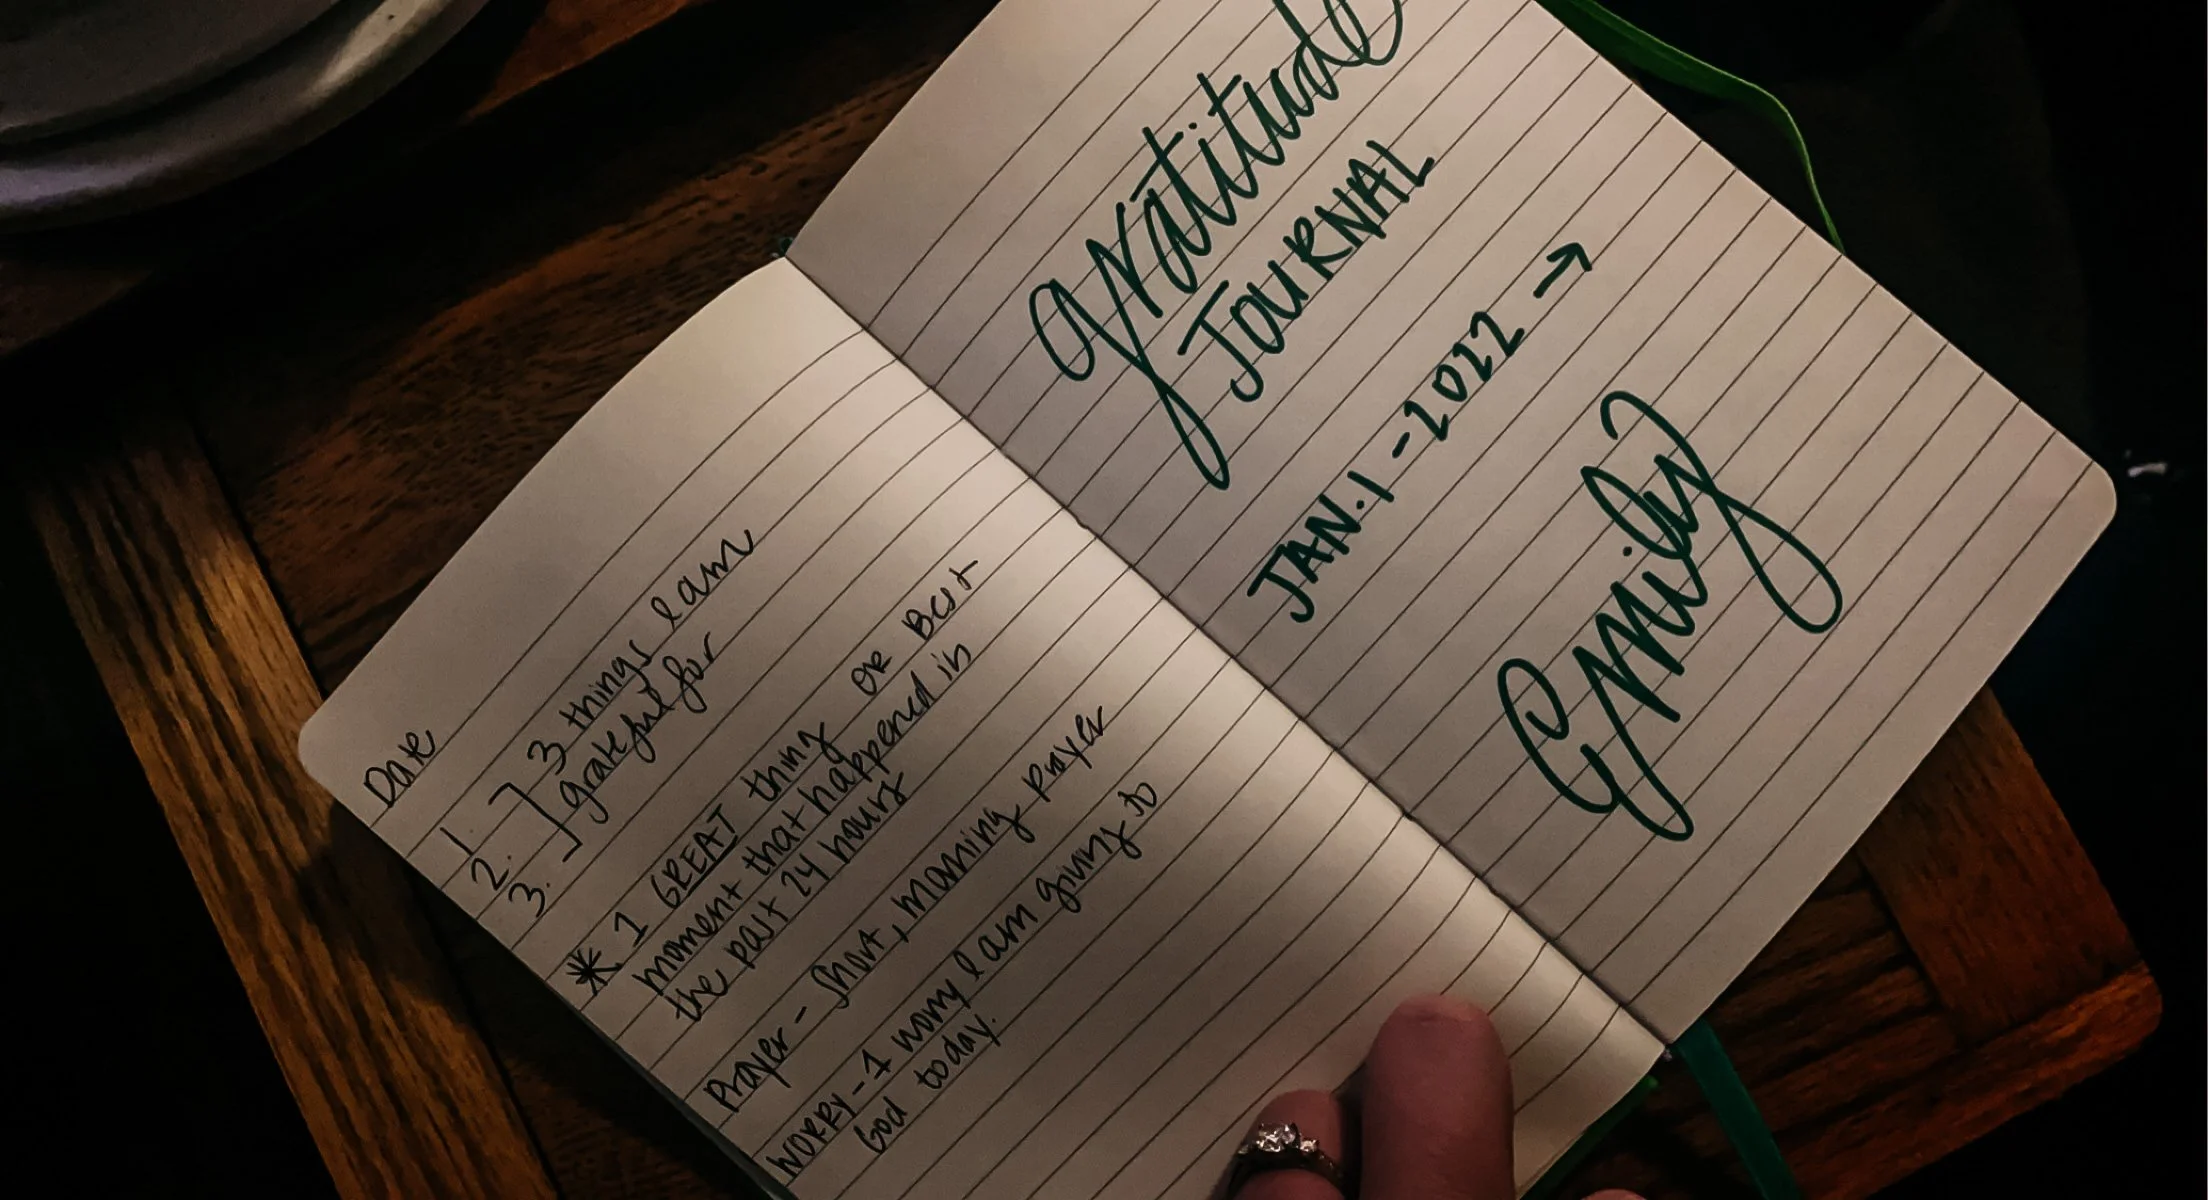 Date
1
2.
3.
3 things I am
grateful for
* 1 GREAT thing OR BEST
moment that happened in
the past 24 hours
Prayer - Short, morning prayer
WORRY - 1 worry I am giving to
God today.
gratitude
JOURNAL
JAN. 1 - 2022 →
Emily